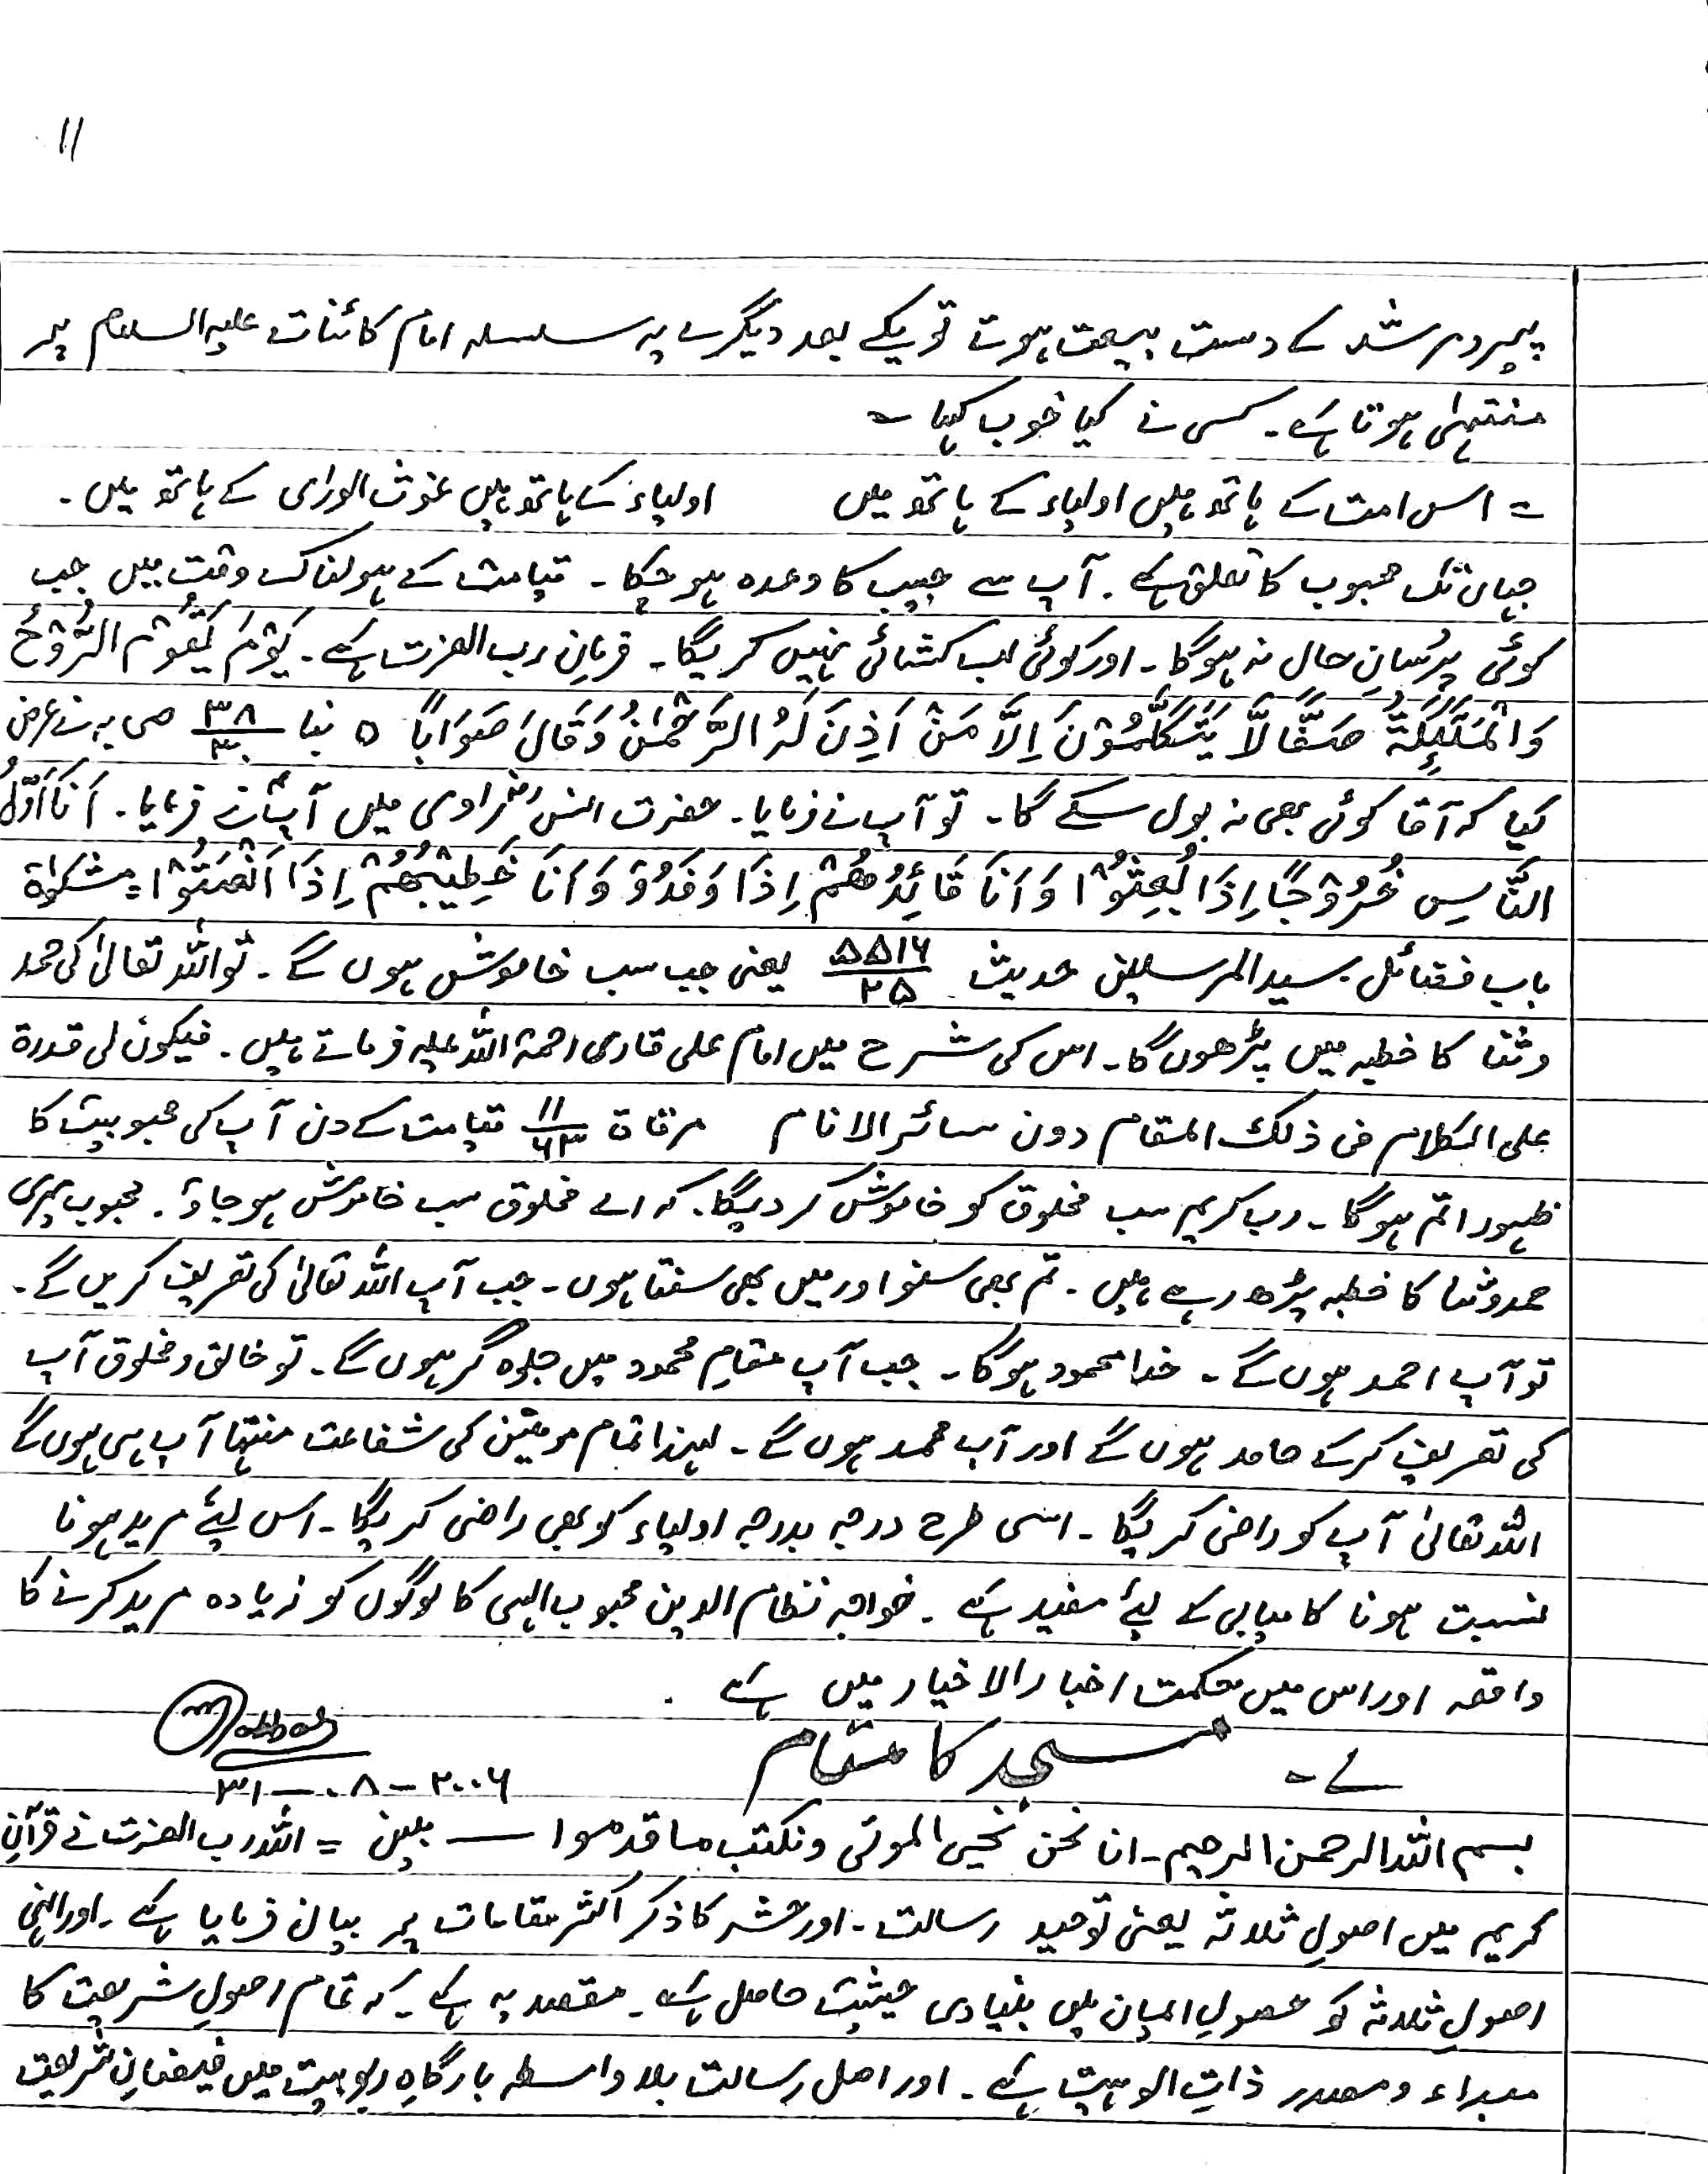 11
پیر و مرشد کے دست بیعت ہوتے تو یکے بعد دیگرے یہ سلسلہ امام کائنات علیہ السلام پر
منتہیٰ ہوتا ہے۔ کسی نے کیا خوب کہا ؎
= اس امت کے ہاتھ ہیں اولیاء کے ہاتھ میں اولیاء کے ہاتھ ہیں غوث الوراى کے ہاتھ میں ۔
جہاں تک محبوب کا تعلق ہے ۔ آپ سے حبیب کا وعدہ ہو چکا ۔ قیامت کے ہولناک وقت میں جب
کوئی پرُسانِ حال نہ ہوگا ۔ اور کوئی لب کشائی نہیں کریگا ۔ فرمانِ رب العزت ہے ۔ یَوْمَ یَقُوْمُ الرُّوْحُ
وَالْمَلٰٓئِکَةُ صَفًّا لَّا یَتَکَلَّمُوْنَ اِلَّا مَنْ اَذِنَ لَهُ الرَّحْمٰنُ وَقَالَ صَوَابًا ۵ نبا ۳۸/۳۰ صحابہ نے عرض
کیا کہ آقا کوئی بھی نہ بول سکے گا ۔ تو آپ نے فرمایا ۔ حضرت انسؓ راوی ہیں آپؐ نے فرمایا ۔ اَنَا اَوَّلُ
النَّاسِ خُرُوْجًا اِذَا بُعِثُوْا وَ اَنَا قَائِدُهُمْ اِذَا وَفَدُوْ وَ اَنَا خَطِیْبُهُمْ اِذَا اَنْصَتُوْا = مشکوٰۃ
باب فضائل سید المرسلین حدیث ۵۵۱۶/۲۵ یعنی جب سب خاموش ہوں گے ۔ تو اللہ تعالیٰ کی حمد
و ثنا کا خطبہ میں پڑھوں گا ۔ اس کی شرح میں امام علی قاری رحمۃ اللہ علیہ فرماتے ہیں ۔ فیکون لی قدرۃ
علی الکلام فی ذلک المقام دون سائر الانام مرقاۃ ۱۱/۶۳ قیامت کے دن آپ کی محبوبیت کا
ظہور اتم ہوگا ۔ رب کریم سب مخلوق کو خاموش کر دیگا۔ کہ اے مخلوق سب خاموش ہو جاؤ ۔ محبوب میری
حمد و ثنا کا خطبہ پڑھ رہے ہیں ۔ تم بھی سنو اور میں بھی سنتا ہوں ۔ جب آپ اللہ تعالیٰ کی تعریف کریں گے ۔
تو آپ احمد ہوں گے ۔ خدا محمود ہوگا ۔ جب آپ مقامِ محمود میں جلوہ گر ہوں گے ۔ تو خالق و مخلوق آپ
کی تعریف کر کے حامد ہوں گے اور آپ محمد ہوں گے ۔ لہذا تمام مومنین کی شفاعت منتہا آپ ہی ہوں گے
اللہ تعالیٰ آپ کو راضی کریگا ۔ اسی طرح درجہ بدرجہ اولیاء کو بھی راضی کریگا ۔ اس لیئے مرید ہونا
نسبت ہونا کامیابی کے لیئے مفید ہے ۔ خواجہ نظام الدین محبوب الہی کا لوگوں کو زیادہ مرید کرنے کا
واقعہ اور اس میں حکمت اخبار الاخیار میں ہے ۔
۷ - مسجد کا مقام
۳۱-۰۸-۲۰۰۶
بسم اللہ الرحمن الرحیم ۔ انا نحن نحیی الموتی ونکتب ما قدموا — مبین = اللہ رب العزت نے قرآنِ
کریم میں اصولِ ثلاثہ یعنی توحید رسالت ۔ اور حشر کا ذکر اکثر مقامات پر بیان فرمایا ہے ۔ اور انہی
اصولِ ثلاثہ کو حصولِ ایمان میں بنیادی حیثیت حاصل ہے ۔ مقصد یہ ہے کہ تمام اصولِ شریعت کا
مبداء و مصدر ذاتِ الوہیت ہے ۔ اور اصل رسالت بلا واسطہ بارگاہِ ربوبیت میں فیضانِ شریعت